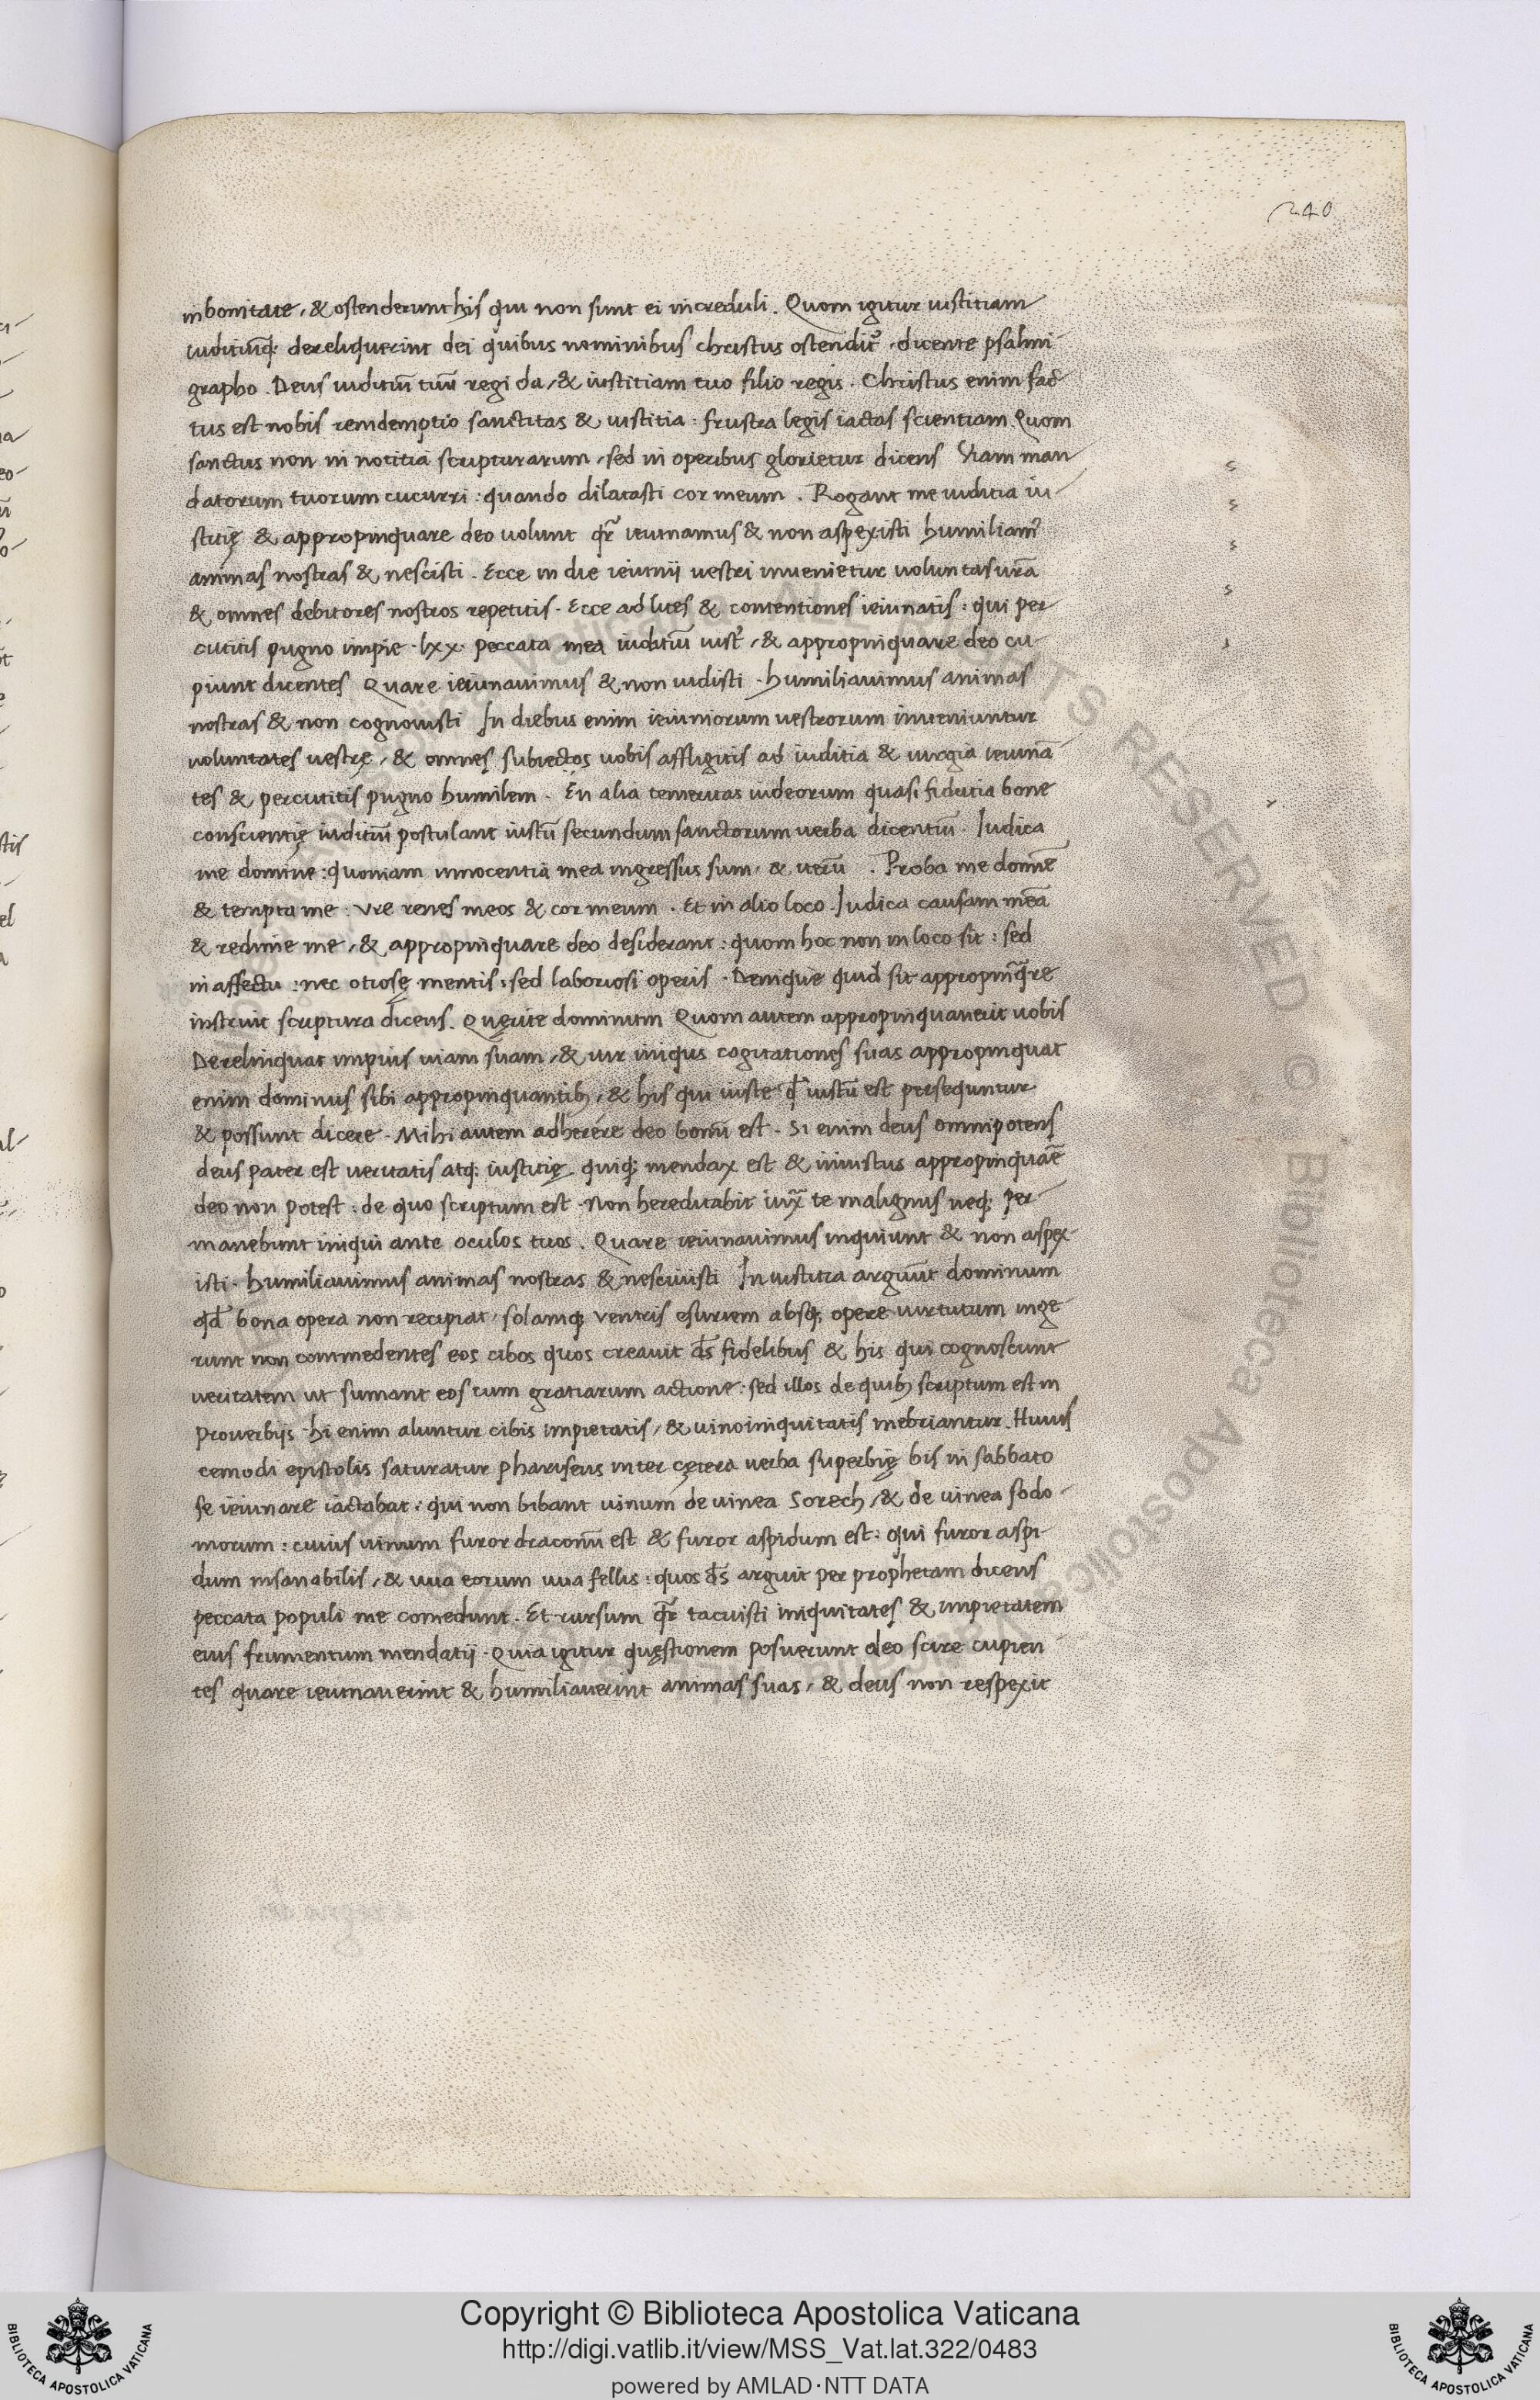 240
in bonitate, & ostenderunt his qui non sunt ei increduli. Quom igitur iustitiam
iuditiũq; dereliquerint dei quibus nominibus christus ostendit᷑, dicente psalmi
grapho. Deus iuditiũ tuũ regi da, & iustitiam tuo filio regis. Christus enim fac
tus est nobis remdemptio sanctitas & iustitia: frustra legis iactas scientiam. Quom
sanctus non in notitia scripturarum, sed in operibus glorietur dicens Viam man
datorum tuorum cucurri: quando dilatasti cor meum. Rogant me iuditia iu-
stitię & appropinquare deo uolunt qr̃ ieiunamus & non aspexisti humiliam᷒
animas nostras & nescisti. Ecce in die ieiunij uestri inuenietur uoluntas ur̃a
& omnes debitores nostros repetitis. Ecce ad lites & contentiones ieiunatis: qui per
cutitis pugno impie. lxx. peccata mea iuditiũ iust᷑, & appropinquare deo cu-
piunt dicentes Quare ieiunauimus & non uidisti. humiliauimus animas
nostras & non cognouisti In diebus enim ieiuniorum uestrorum inueniuntur
uoluntates uestrę, & omnes subiectos uobis affligitis ad iuditia & iurgia ieiunã
tes & percutitis pugno humilem. En alia temeritas iudeorum quasi fidutia bone
conscientię iuditiũ postulant iustũ secundum sanctorum uerba dicentiũ. Iudica
me domine: quoniam innocentia mea ingressus sum, & iterũ. Proba me dominẽ
& tempta me: Vre renes meos & cor meum. Et in alio loco. Iudica causam meã
& redime me, & appropinquare deo desiderant: quom hoc non in loco sit: sed
in affectu: nec otiosę mentis, sed laboriosi operis. Denique quid sit appropinq̃re
instruit scriptura dicens. Quęrite dominum Quom autem appropinquauerit uobis
Derelinquat impius uiam suam, & uir iniqus cogitationes suas appropinquat
enim dominus sibi appropinquantib;, & his qui iuste qđ iustũ est persequntur
& possunt dicere. Mihi autem adherere deo bonũ est. Si enim deus omnipotens
deus pater est ueritatis atq; iustitię quiq; mendax est & iniustus appropinquãe
deo non potest: de quo scriptum est. Non hereditabit iux̃ te malignus neq; per
manebunt iniqui ante oculos tuos. Quare ieiunauimus inquiunt & non aspex
isti. humiliauimus animas nostras & nesciuisti In iustitia arguũt dominum
qđ bona opera non recipiat, solamq; ventris esuriem absq; opere uirtutum inge
runt non commedentes eos cibos quos creauit ds̃ fidelibus & his qui cognoscunt
ueritatem ut sumant eos cum gratiarum actione: sed illos de quib; scriptum est in
prouerbijs hi enim aluntur cibis impietatis, & uino iniquitatis inebriantur. Huius
cemodi epistolis saturatur phariseus inter cętera uerba superbię bis in sabbato
se ieiunare iactabat: qui non bibant uinum de uinea Sorech, & de uinea sodo-
morum: cuius uinum furor draconũ est & furor aspidum est: qui furor aspi-
dum insanabilis, & uua eorum uua fellis: quos ds̃ arguit per prophetam dicens
peccata populi me comedunt. Et rursum qr̃ tacuisti iniquitates & impietatem
eius frumentum mendatij. Quia igitur quęstionem posuerunt deo scire cupien
tes quare ieiunauerint & humiliauerint animas suas, & deus non respexit
Copyright © Biblioteca Apostolica Vaticana
http://digi.vatlib.it/view/MSS_Vat.lat.322/0483
powered by AMLAD·NTT DATA
BIBLIOTECA APOSTOLICA VATICANA
BIBLIOTECA APOSTOLICA VATICANA